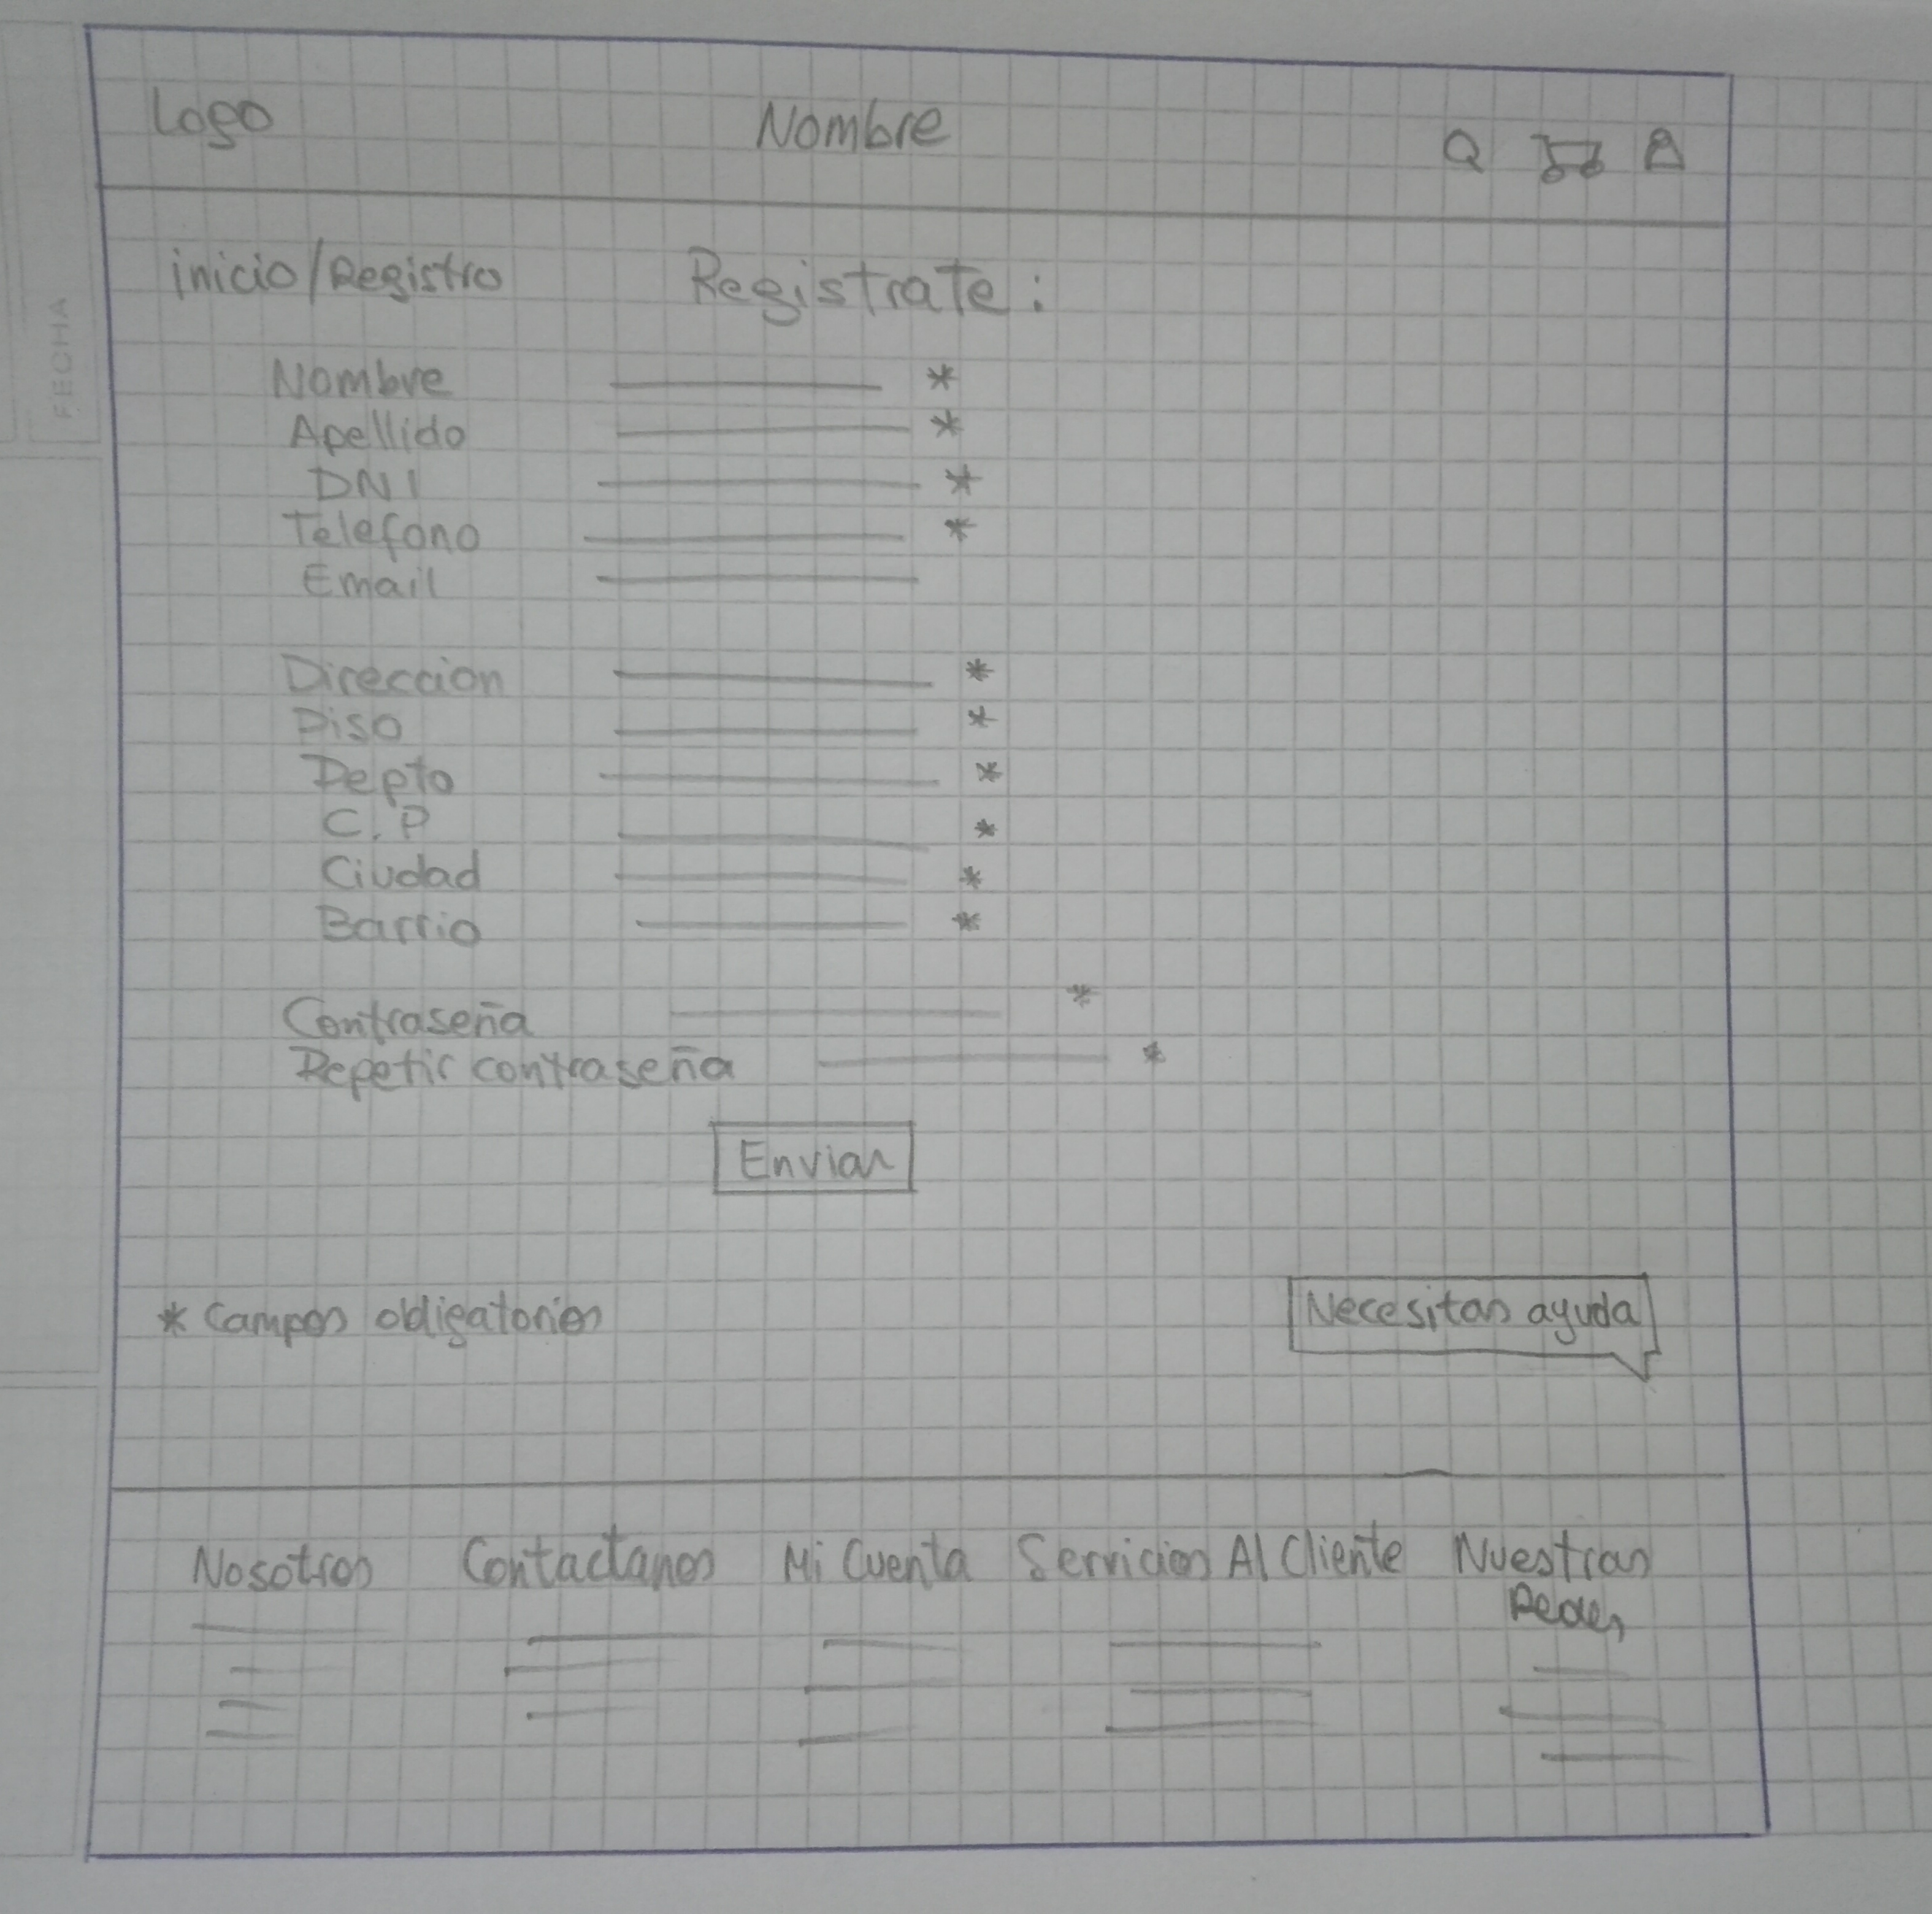 Logo Nombre
inicio/Registro Registrate:
Nombre *
Apellido *
DNI *
Telefono *
Email
Direccion *
Piso *
Depto *
C.P *
Ciudad *
Barrio *
Contraseña *
Repetir contraseña *
Enviar
* Campos obligatorios
Necesitas ayuda
Nosotros Contactanos Mi Cuenta Servicios Al Cliente Nuestras
Redes
FECHA